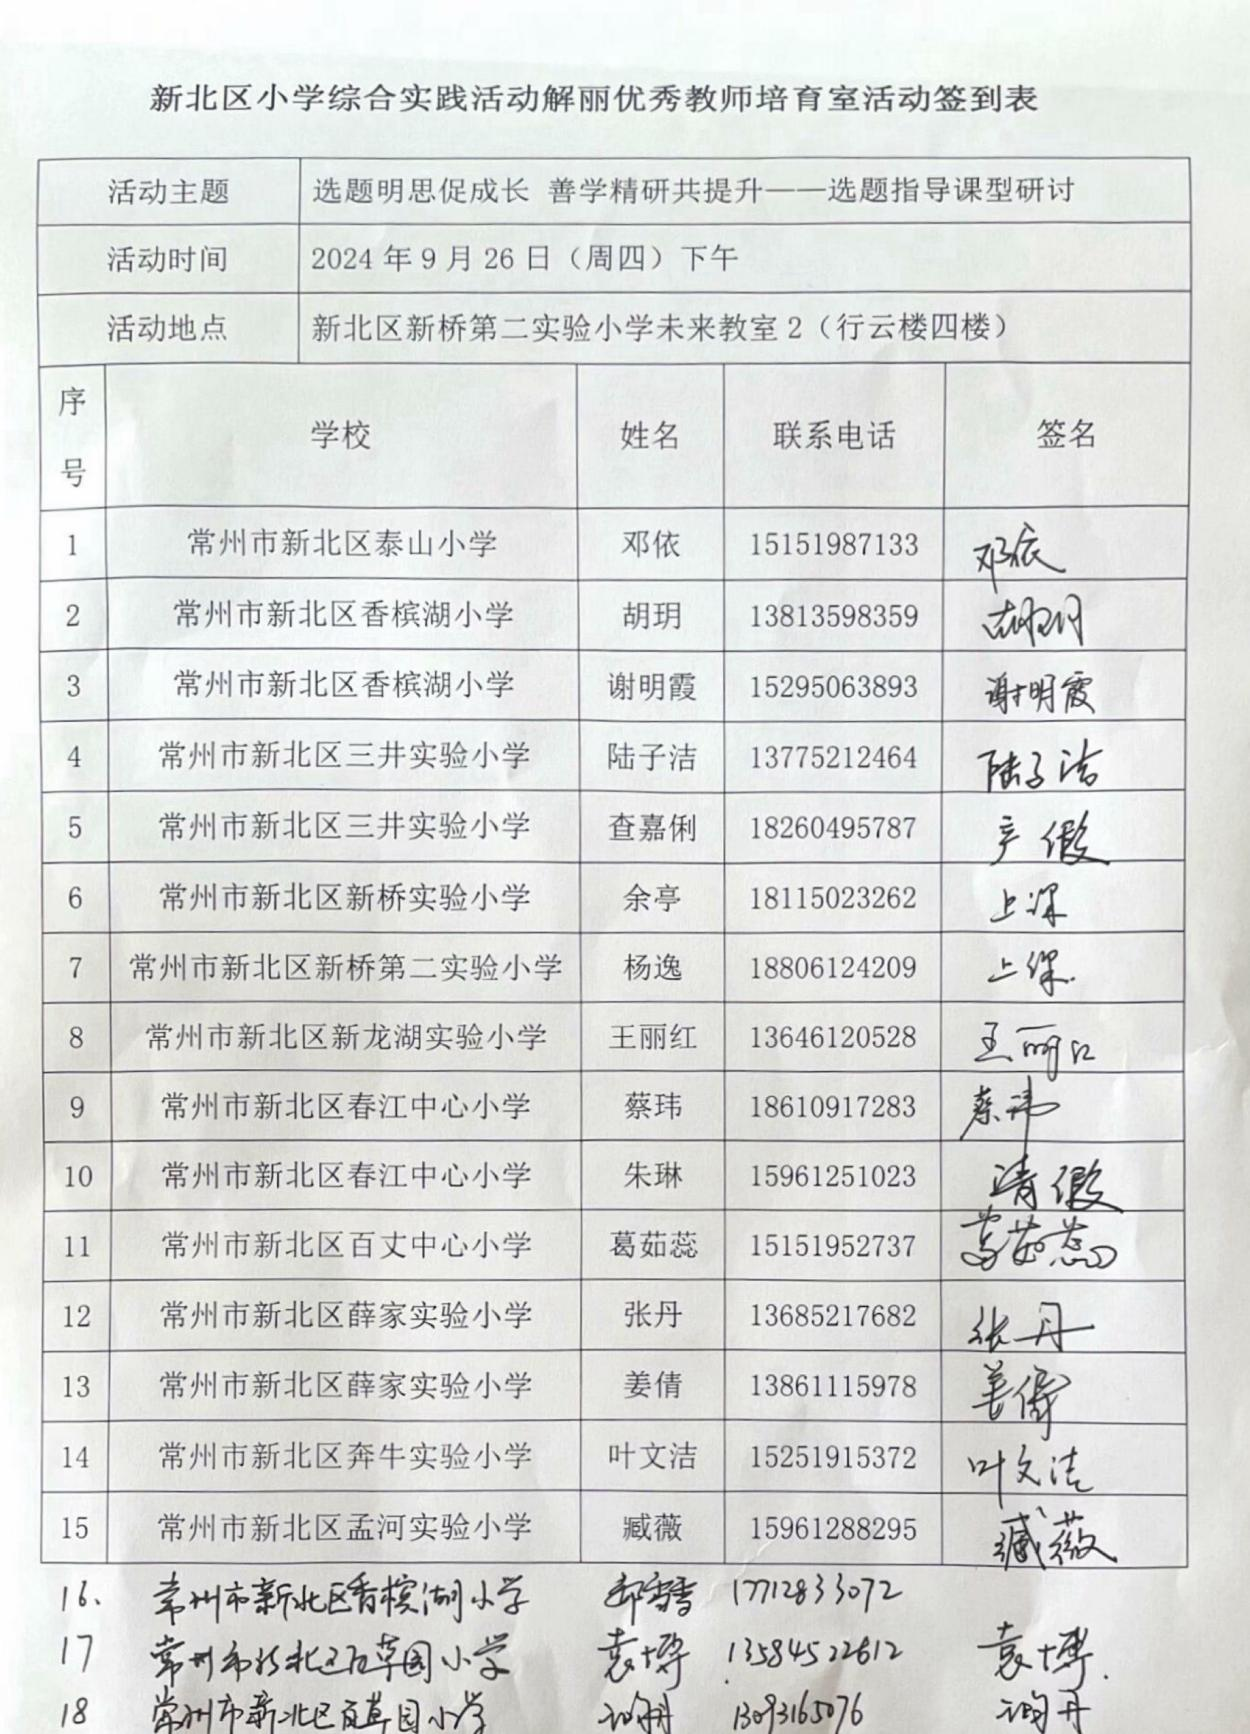 新北区小学综合实践活动解丽优秀教师培育室活动签到表
活动主题 选题明思促成长 善学精研共提升——选题指导课型研讨
活动时间 2024 年 9 月 26 日（周四）下午
活动地点 新北区新桥第二实验小学未来教室 2（行云楼四楼）
序号 学校 姓名 联系电话 签名
1 常州市新北区泰山小学 邓依 15151987133 邓依
2 常州市新北区香槟湖小学 胡玥 13813598359 胡玥
3 常州市新北区香槟湖小学 谢明霞 15295063893 谢明霞
4 常州市新北区三井实验小学 陆子洁 13775212464 陆子洁
5 常州市新北区三井实验小学 查嘉俐 18260495787 产假
6 常州市新北区新桥实验小学 余亭 18115023262 上课
7 常州市新北区新桥第二实验小学 杨逸 18806124209 上课
8 常州市新北区新龙湖实验小学 王丽红 13646120528 王丽红
9 常州市新北区春江中心小学 蔡玮 18610917283 蔡玮
10 常州市新北区春江中心小学 朱琳 15961251023 请假
11 常州市新北区百丈中心小学 葛茹蕊 15151952737 葛茹蕊
12 常州市新北区薛家实验小学 张丹 13685217682 张丹
13 常州市新北区薛家实验小学 姜倩 13861115978 姜倩
14 常州市新北区奔牛实验小学 叶文洁 15251915372 叶文洁
15 常州市新北区孟河实验小学 臧薇 15961288295 臧薇
16. 常州市新北区香槟湖小学 17712833072
17 常州市新北区百草园小学 袁博 13584522612 袁博
18 常州市新北区百草园小学 13093165076